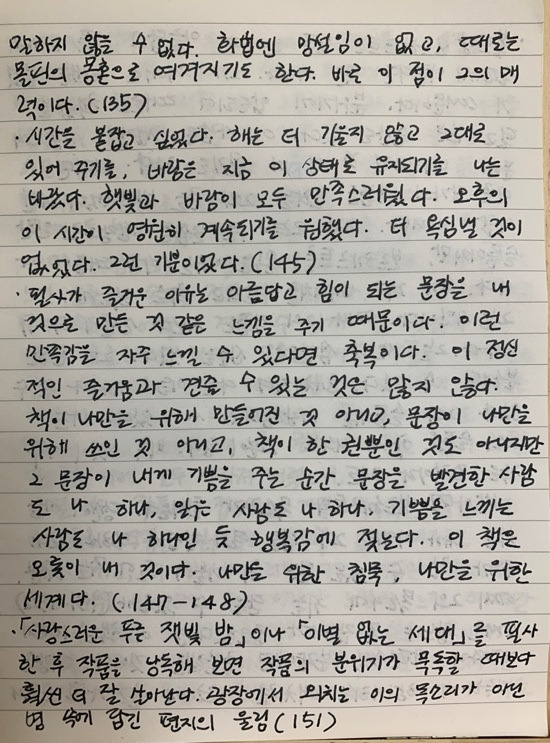 말하지 않을 수 없다. 화법엔 망설임이 없고, 때로는
몰핀의 몽혼으로 여겨지기도 한다. 바로 이 점이 그의 매
력이다. (135)
· 시간을 붙잡고 싶었다. 해는 더 기울지 않고 그대로
있어 주기를, 바람은 지금 이 상태로 유지되기를 나는
바랐다. 햇빛과 바람이 모두 만족스러웠다. 오후의
이 시간이 영원히 계속되기를 원했다. 더 욕심낼 것이
없었다. 그런 기분이었다. (145)
· 필사가 즐거운 이유는 아름답고 힘이 되는 문장을 내
것으로 만든 것 같은 느낌을 주기 때문이다. 이런
만족감을 자주 느낄 수 있다면 축복이다. 이 정신
적인 즐거움과 견줄 수 있는 것은 많지 않다.
책이 나만을 위해 만들어진 것 아니고, 문장이 나만을
위해 쓰인 것 아니고, 책이 한 권뿐인 것도 아니지만
그 문장이 내게 기쁨을 주는 순간 문장을 발견한 사람
도 나 하나, 읽은 사람도 나 하나, 기쁨을 느끼는
사람도 나 하나인 듯 행복감에 젖는다. 이 책은
오롯이 내 것이다. 나만을 위한 침묵, 나만을 위한
세계다. (147-148)
·「사랑스러운 푸른 잿빛 밤」이나 「이별 없는 세대」를 필사
한 후 작품을 낭독해 보면 작품의 분위기가 묵독할 때보다
훨씬 더 잘 살아난다. 광장에서 외치는 이의 목소리가 아닌
병 속에 담긴 편지의 울림 (151)